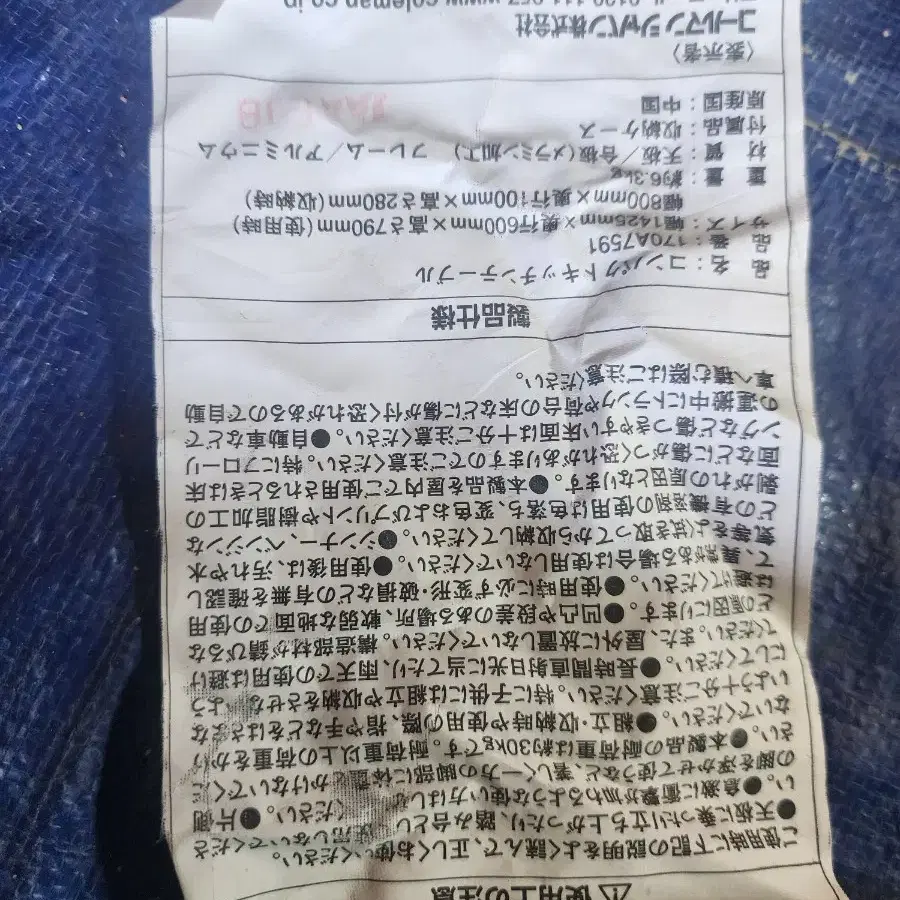 ⚠使用上の注意
ご使用時に下記の説明をよく読んで、正しくお使いください。
●天板に乗ったり立ち上がったり、踏み台として使用しないでくださ
い。●急激に衝撃が加わるような使い方はしないでください。●片側
の脚を浮かせて使うなど、著しく一方の脚部に体重をかけないでくだ
さい。●本製品の耐荷重は約30kgです。耐荷重以上の荷重をかけ
ないでください。●組立・収納時や使用の際、指や手などをはさまな
いよう十分ご注意ください。特に子供には組立や収納をさせないよう
にしてください。●長時間直射日光に当てたり、雨天での使用は避け
てください。また、屋外に放置しないでください。構造部材が錆びるな
どの原因になります。●凹凸や段差のある場所、軟弱な地面での使用
は避けてください。●使用時に必ず変形・破損などの有無を確認し
て、異常がある場合は使用しないでください。●使用後は、汚れや水
気等をよく拭き取ってから収納してください。●シンナー、ベンジンな
どの有機溶剤の使用は色落ち、変色およびプリントや樹脂加工の
剥がれの原因となります。●本製品を屋内でご使用されるときは床
面などに傷がつく恐れがありますのでご注意ください。特にフローリ
ングなど傷つきやすい床面は十分ご注意ください。●自動車などで
の運搬中にトランクや荷台の床などに傷が付く恐れがあるので自動
車へ積む際はご注意ください。
製品仕様
品名：コンパクトキッチンテーブル
品番：170A7591
サイズ：幅1425mm×奥行600mm×高さ790mm(使用時)
幅800mm×奥行100mm×高さ280mm(収納時)
重量：約6.3kg
材質：天板／合板(メラミン加工) フレーム／アルミニウム
付属品：収納ケース
原産国：中国
〈表示者〉
コールマン ジャパン株式会社
www.coleman.co.jp